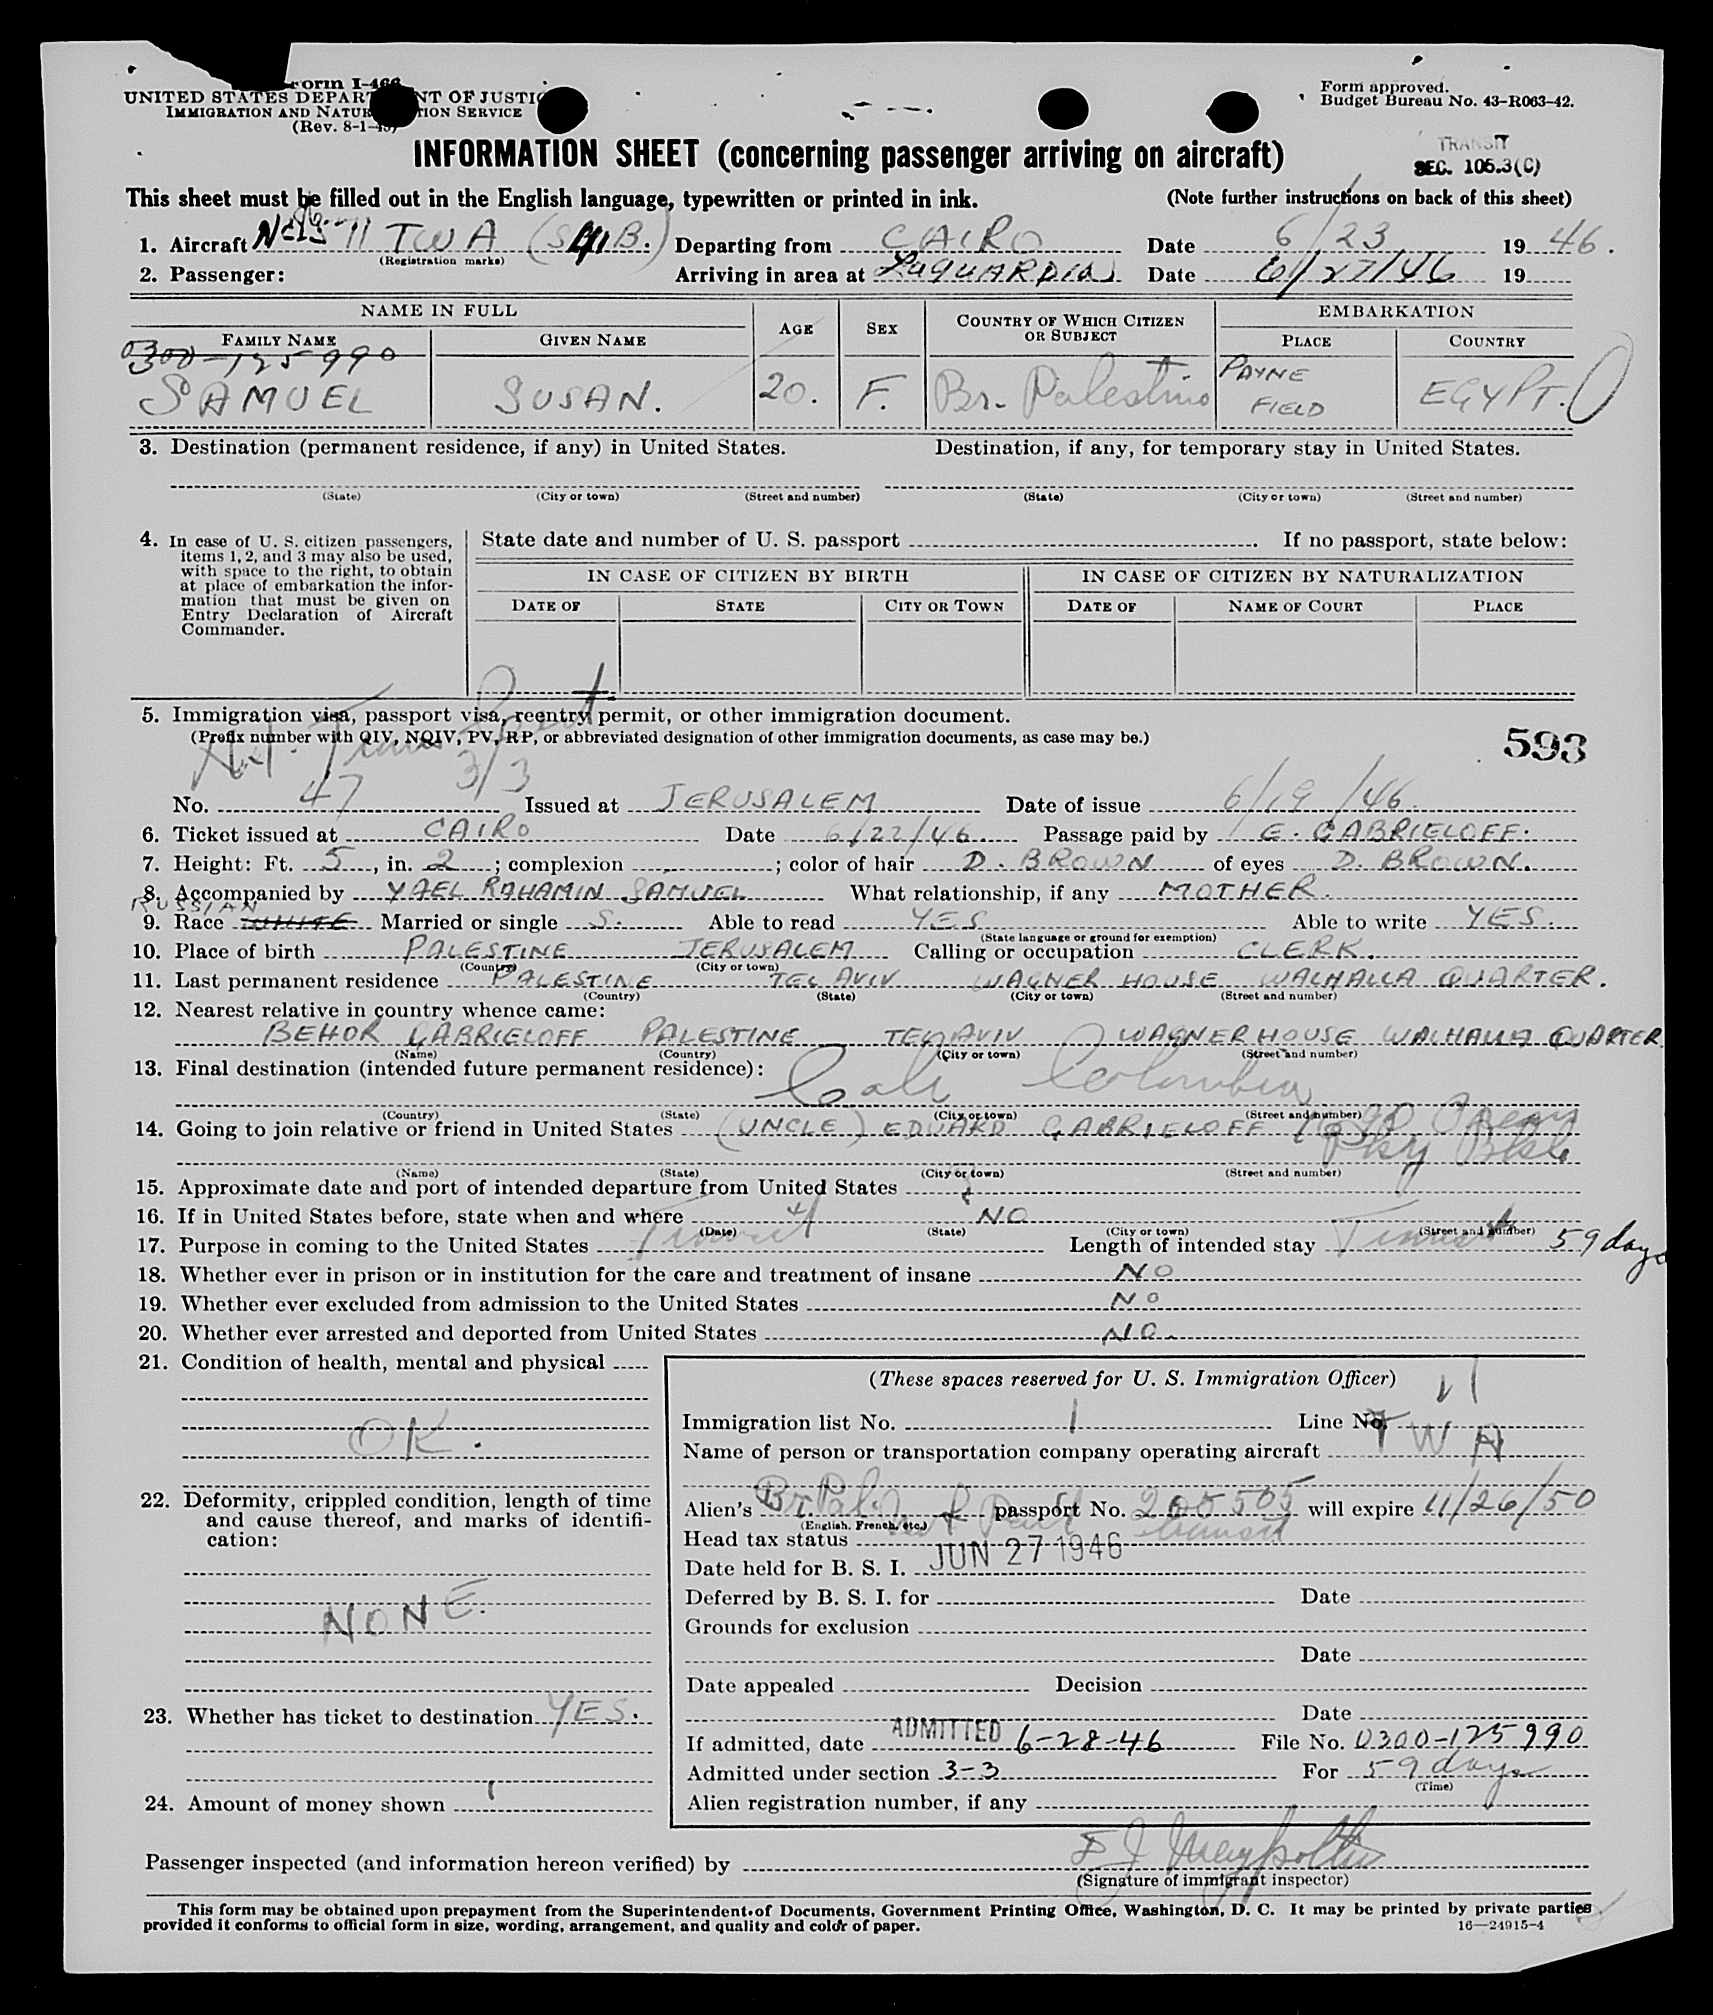 Form I-466
UNITED STATES DEPARTMENT OF JUSTICE
IMMIGRATION AND NATURALIZATION SERVICE
(Rev. 8-1-45)
Form approved.
Budget Bureau No. 43-R063-42.
INFORMATION SHEET (concerning passenger arriving on aircraft)
TRANSIT
SEC. 105.3(C)
This sheet must be filled out in the English language, typewritten or printed in ink. (Note further instructions on back of this sheet)
1. Aircraft TWA Departing from CAIRO Date 6/23 1946.
(Registration marks)
2. Passenger: Arriving in area at LaGUARDIA Date 6/27/46 19
NAME IN FULL AGE SEX COUNTRY OF WHICH CITIZEN OR SUBJECT EMBARKATION
FAMILY NAME GIVEN NAME PLACE COUNTRY
0300-125990
SAMUEL SUSAN. 20. F. Br. Palestine PAYNE FIELD EGYPT.
3. Destination (permanent residence, if any) in United States. Destination, if any, for temporary stay in United States.
(State) (City or town) (Street and number) (State) (City or town) (Street and number)
4. In case of U. S. citizen passengers, items 1, 2, and 3 may also be used, with space to the right, to obtain at place of embarkation the information that must be given on Entry Declaration of Aircraft Commander.
State date and number of U. S. passport . If no passport, state below:
IN CASE OF CITIZEN BY BIRTH IN CASE OF CITIZEN BY NATURALIZATION
DATE OF STATE CITY OR TOWN DATE OF NAME OF COURT PLACE
5. Immigration visa, passport visa, reentry permit, or other immigration document.
(Prefix number with QIV, NQIV, PV, RP, or abbreviated designation of other immigration documents, as case may be.)
593
3/3
No. 47 Issued at JERUSALEM Date of issue 6/19/46.
6. Ticket issued at CAIRO Date 6/22/46. Passage paid by E. GABRIELOFF.
7. Height: Ft. 5, in. 2; complexion ; color of hair D. BROWN of eyes D. BROWN.
8. Accompanied by YAEL RAHAMIN SAMUEL What relationship, if any MOTHER.
RUSSIAN
9. Race WHITE Married or single S. Able to read YES Able to write YES.
(State language or ground for exemption)
10. Place of birth PALESTINE JERUSALEM Calling or occupation CLERK.
(Country) (City or town)
11. Last permanent residence PALESTINE TEL AVIV WAGNER HOUSE WALHALLA QUARTER.
(Country) (State) (City or town) (Street and number)
12. Nearest relative in country whence came:
BEHOR GABRIELOFF PALESTINE TEL AVIV WAGNER HOUSE WALHALLA QUARTER.
(Name) (Country) (City or town) (Street and number)
13. Final destination (intended future permanent residence):
Cali Colombia
(Country) (State) (City or town) (Street and number)
14. Going to join relative or friend in United States (UNCLE) EDUARD GABRIELOFF
(Name) (State) (City or town) (Street and number)
15. Approximate date and port of intended departure from United States
16. If in United States before, state when and where NO
(Date) (State) (City or town) (Street and number)
17. Purpose in coming to the United States Transit Length of intended stay Transit 59 days
18. Whether ever in prison or in institution for the care and treatment of insane NO
19. Whether ever excluded from admission to the United States NO
20. Whether ever arrested and deported from United States NO.
21. Condition of health, mental and physical
OK.
22. Deformity, crippled condition, length of time and cause thereof, and marks of identification:
NONE.
23. Whether has ticket to destination YES.
24. Amount of money shown
(These spaces reserved for U. S. Immigration Officer)
Immigration list No. 1 Line No. 11
Name of person or transportation company operating aircraft TWA
Alien's Br. Pal. passport No. 205505 will expire 11/26/50
(English, French, etc.)
Head tax status transit
JUN 27 1946
Date held for B. S. I.
Deferred by B. S. I. for Date
Grounds for exclusion
Date
Date appealed Decision
Date
If admitted, date ADMITTED 6-28-46 File No. 0300-125990
Admitted under section 3-3 For 59 days
(Time)
Alien registration number, if any
Passenger inspected (and information hereon verified) by
(Signature of immigrant inspector)
This form may be obtained upon prepayment from the Superintendent of Documents, Government Printing Office, Washington, D. C. It may be printed by private parties
provided it conforms to official form in size, wording, arrangement, and quality and color of paper. 16—24915-4